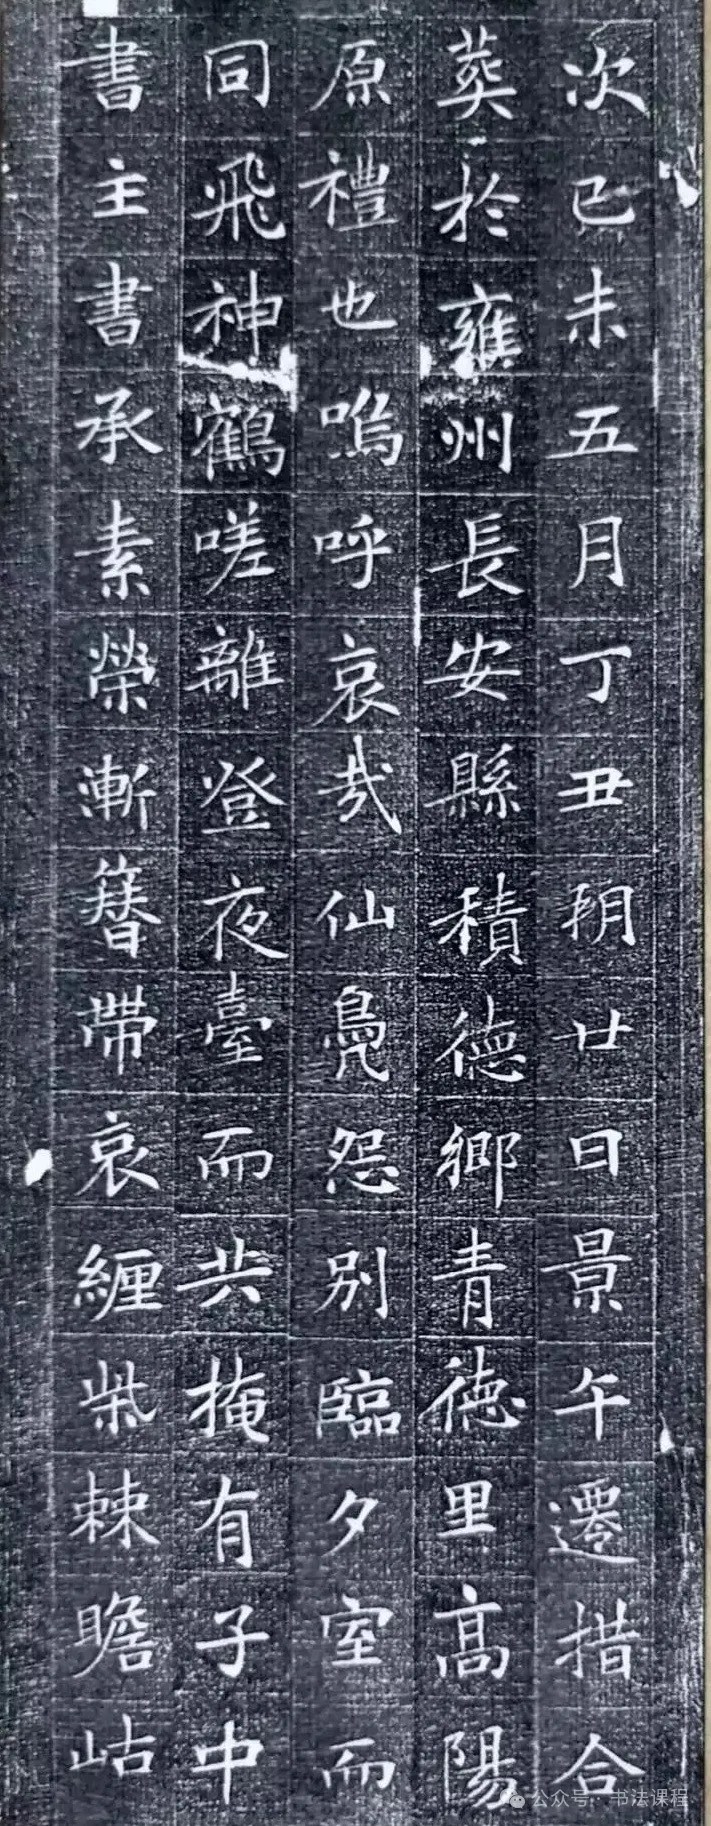 次己未五月丁丑朔廿日景午遷措合
葬於雍州長安縣積德鄉青德里高陽
原禮也嗚呼哀哉仙鳧怨別臨夕室而
同飛神鶴嗟離登夜臺而共掩有子中
書主書承素榮漸簪帶哀纏柴棘瞻岵
公众号·书法课程